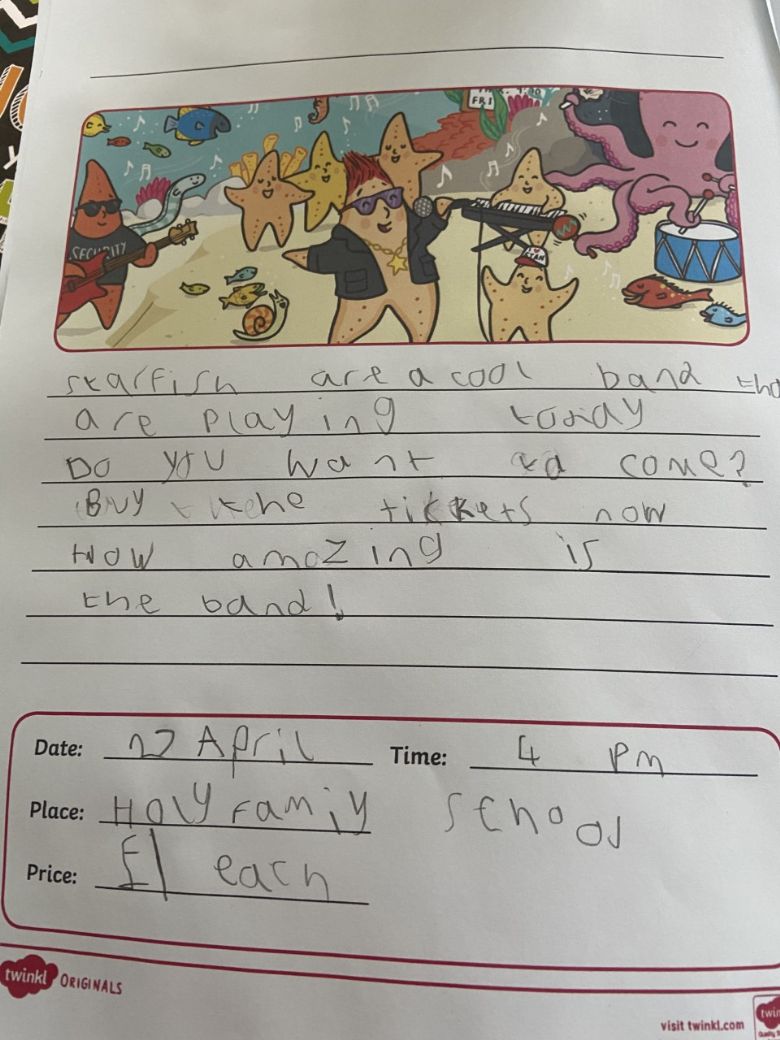 FRI
SECURITY
starfish are a cool band tha
are playing today
Do you want to come?
Buy the tickets now
How amazing is
the band!
Date: 22 April Time: 4 pm
Place: Holy Family School
Price: £1 each
twinkl ORIGINALS
visit twinkl.com